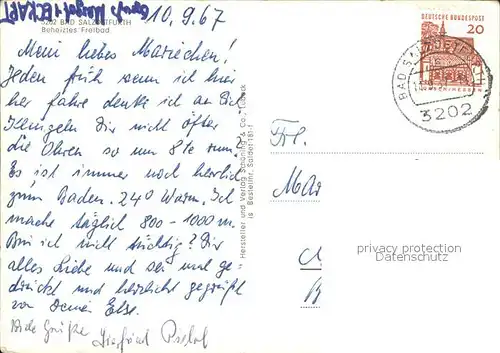 10.9.67
3202 BAD SALZDETFURTH
Beheiztes Freibad
Mein liebes Mariechen!
Jeden früh wenn ich hier
her fahre denke ich an Dich
Klingeln Dir nicht öfter
die Ohren so um 8te rum?
Es ist immer noch herrlich
zum Baden. 24° Warm. Ich
mache täglich 800-1000 m.
Bin ich nicht tüchtig? Dir
alles Liebe und sei und ge-
drückt und herzlichst gegrüßt
von Deiner Else.
Viele Grüße Siegfried
Hersteller und Verlag Schöning & Co., Lübeck
Bestellnr. Saldet 181
DEUTSCHE BUNDESPOST
20
BAD SALZDETFURTH
3202
Frl.
Mar
B
privacy protection
Datenschutz